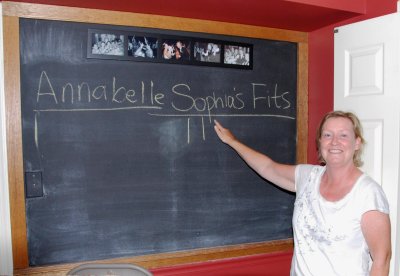 Annabelle Sophia's Fits